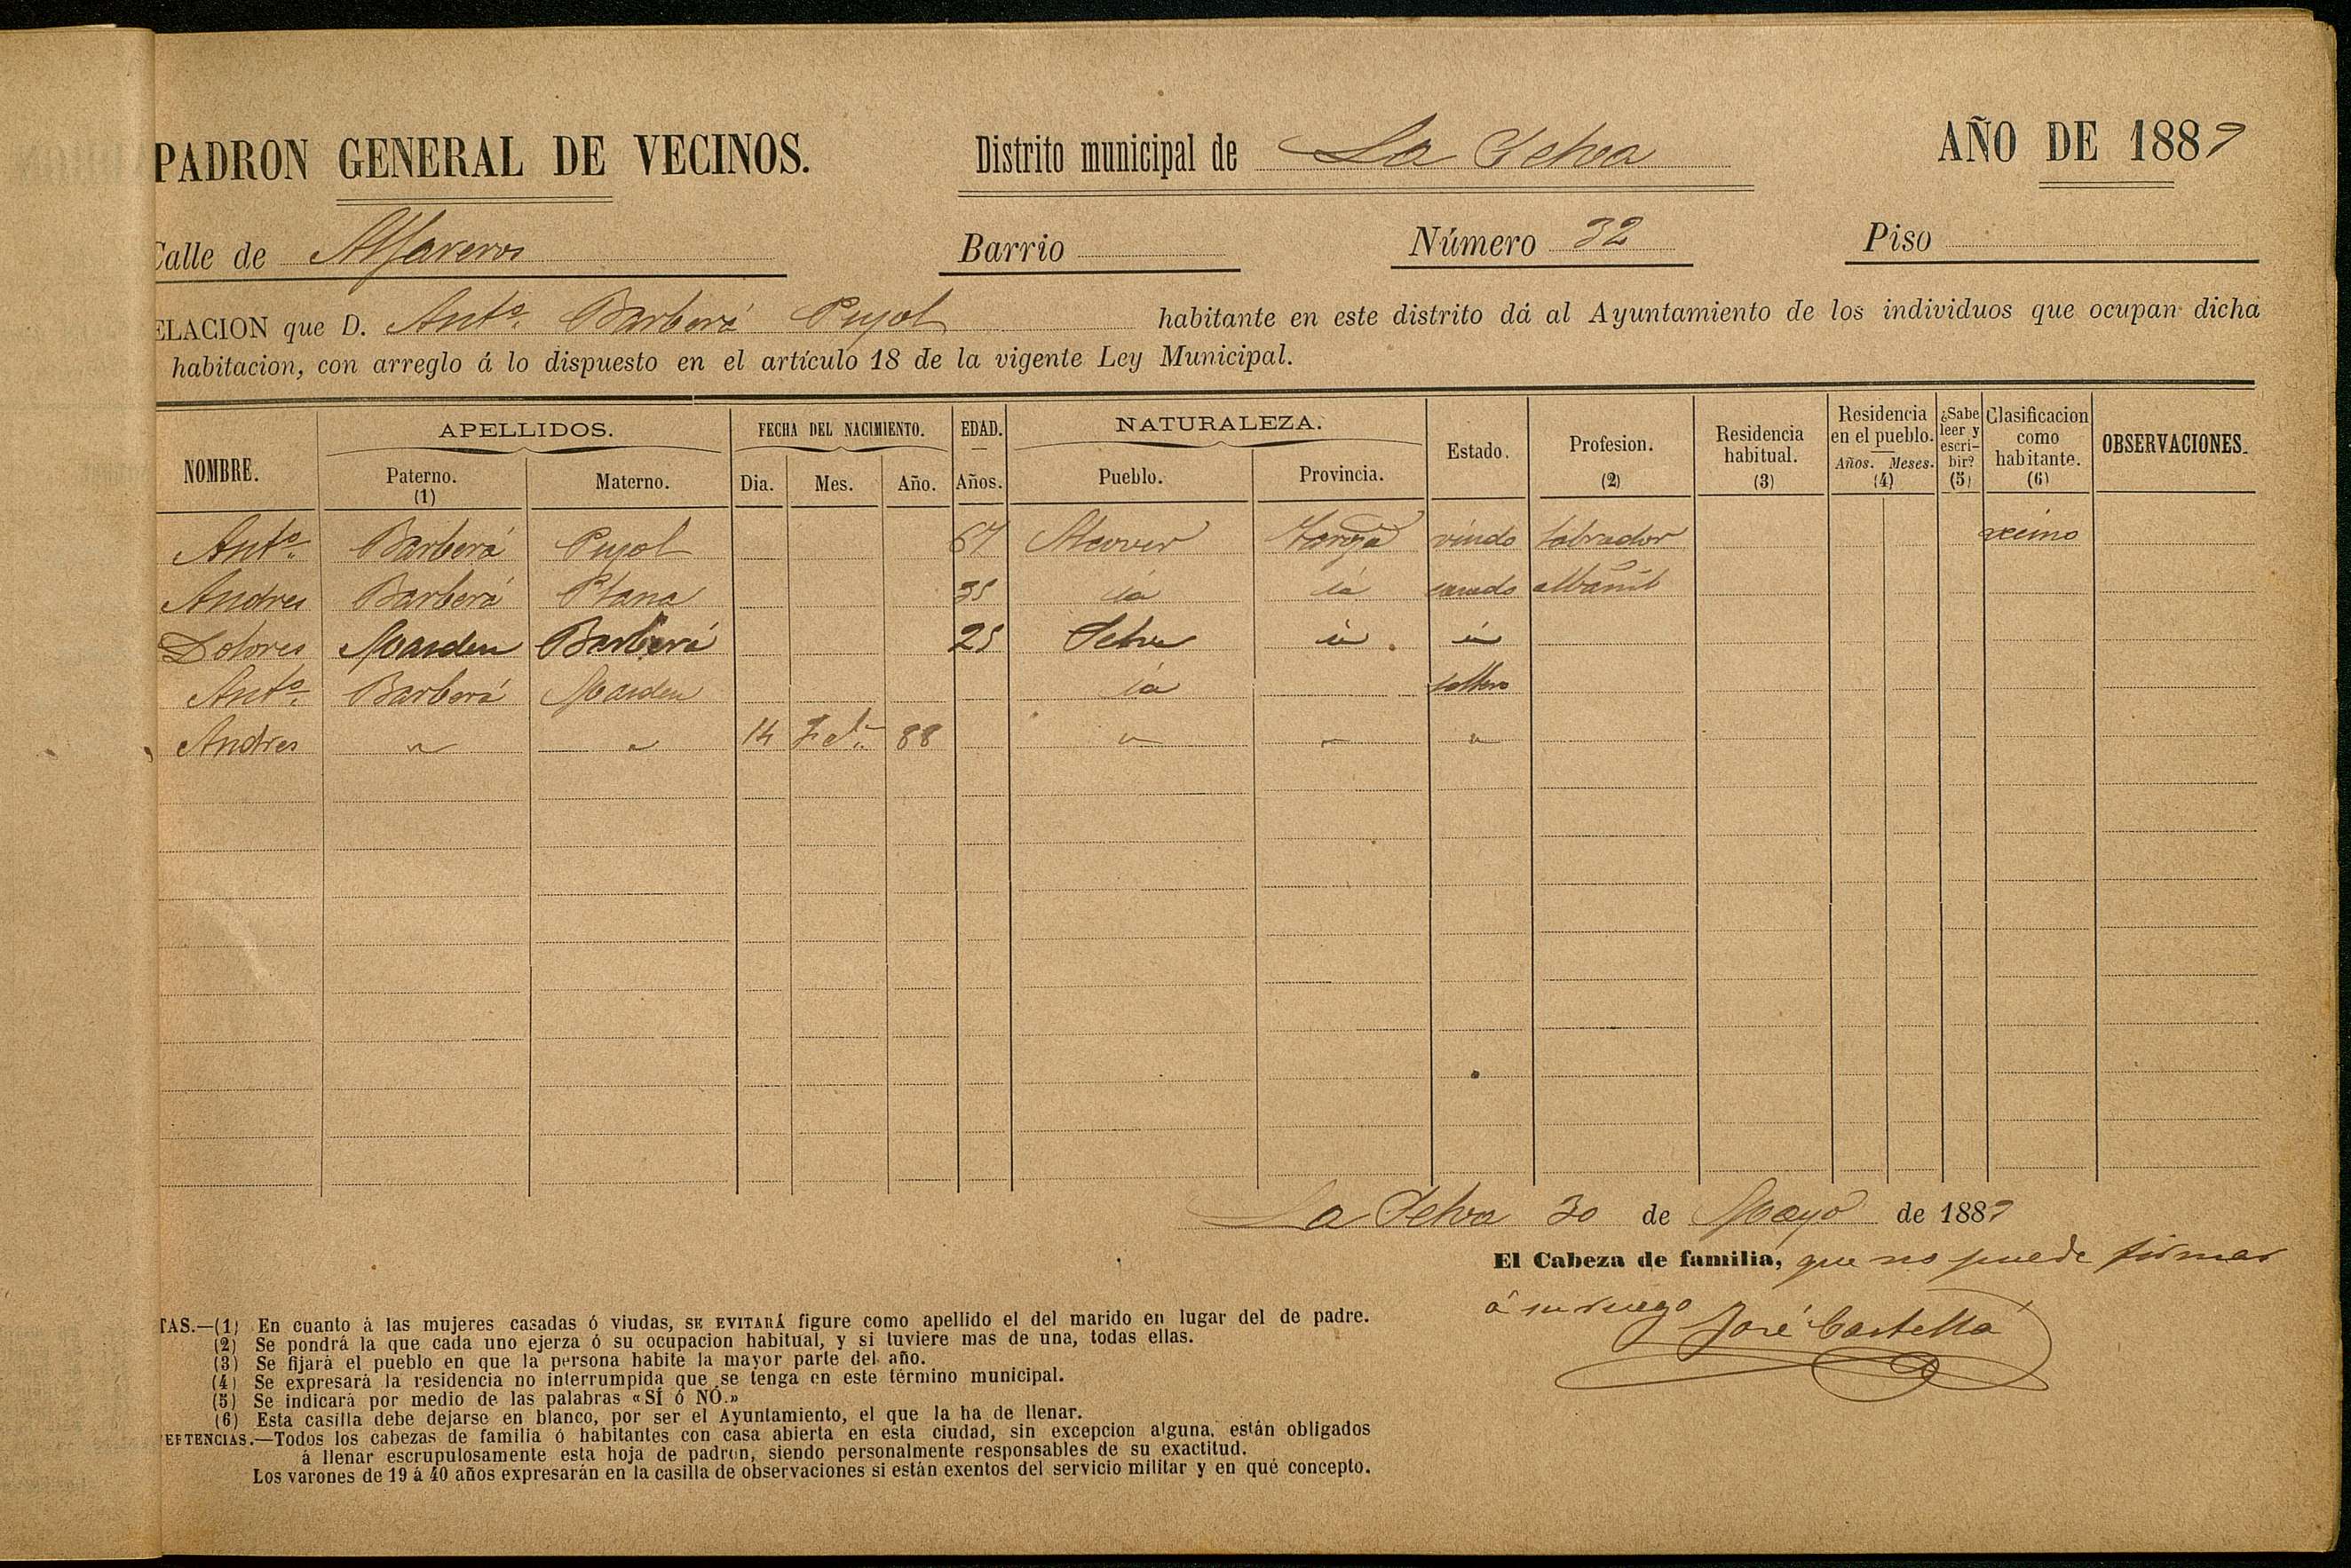 PADRON GENERAL DE VECINOS. Distrito municipal de La Selva AÑO DE 1889
Calle de Alfareros Barrio Número 32 Piso
ELACION que D. Antº Barberá Pujol habitante en este distrito dá al Ayuntamiento de los individuos que ocupan dicha
habitacion, con arreglo á lo dispuesto en el artículo 18 de la vigente Ley Municipal.
NOMBRE. APELLIDOS. FECHA DEL NACIMIENTO. EDAD. NATURALEZA. Estado. Profesion. (2) Residencia habitual. (3) Residencia en el pueblo. Años. Meses. (4) ¿Sabe leer y escribir? (5) Clasificacion como habitante. (6) OBSERVACIONES.
Paterno. (1) Materno. Dia. Mes. Año. Años. Pueblo. Provincia.
Antº Barberá Pujol 67 Alcover Tarrgª viudo labrador vecino
Andres Barberá Plana 35 id id casado albañil
Dolores Barberá 25 Selva id id
Antº Barberá id soltero
Andres " " 14 88 " " "
La Selva 30 de Mayo de 1889
El Cabeza de familia, que no puede firmar
á su ruego José Castellá
TAS.—(1) En cuanto á las mujeres casadas ó viudas, SE EVITARÁ figure como apellido el del marido en lugar del de padre.
(2) Se pondrá la que cada uno ejerza ó su ocupacion habitual, y si tuviere mas de una, todas ellas.
(3) Se fijará el pueblo en que la persona habite la mayor parte del año.
(4) Se expresará la residencia no interrumpida que se tenga en este término municipal.
(5) Se indicará por medio de las palabras «SÍ ó NÓ.»
(6) Esta casilla debe dejarse en blanco, por ser el Ayuntamiento, el que la ha de llenar.
ERTENCIAS.—Todos los cabezas de familia ó habitantes con casa abierta en esta ciudad, sin excepcion alguna, están obligados
á llenar escrupulosamente esta hoja de padron, siendo personalmente responsables de su exactitud.
Los varones de 19 á 40 años expresarán en la casilla de observaciones si están exentos del servicio militar y en qué concepto.